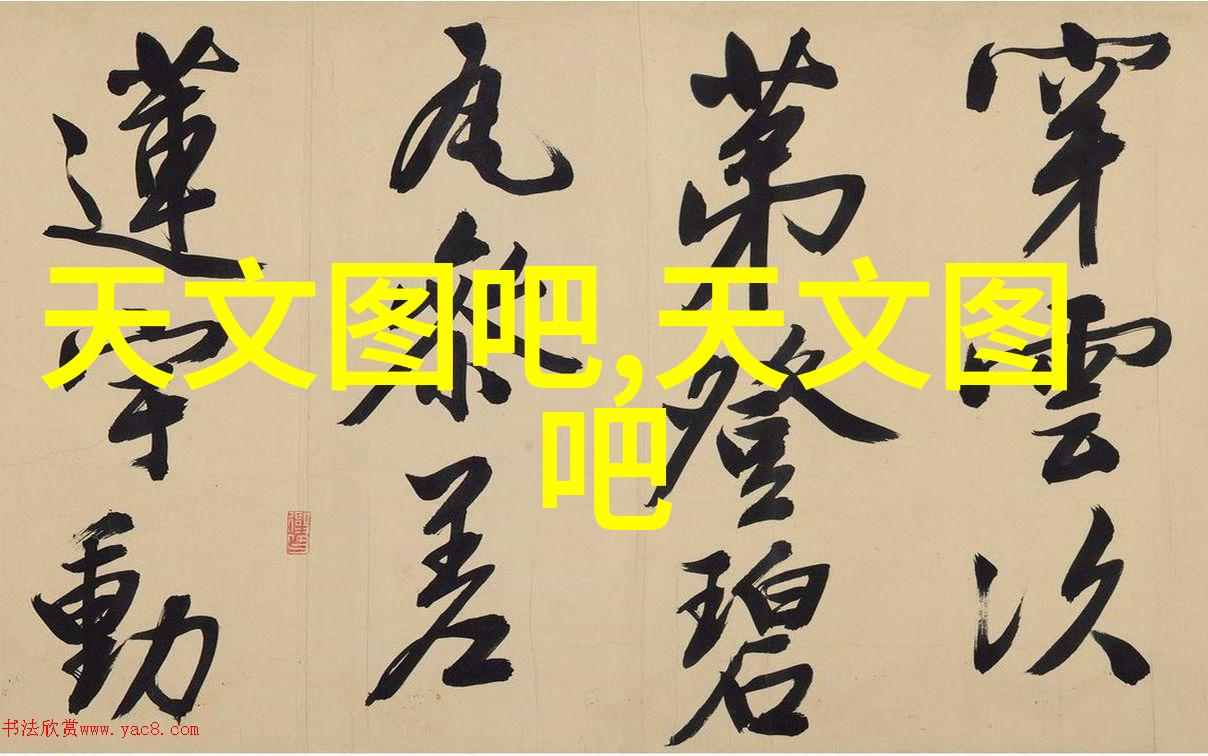 天文图吧,天文图
吧
穿雲次
第登碧
瓦參差
蓮宇動
书法欣赏www.yac8.com